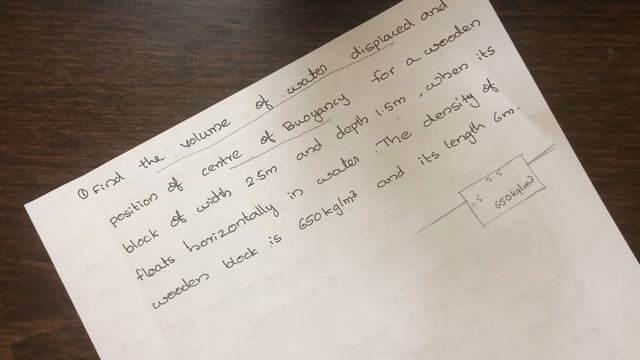 ① Find the volume of water displaced and
position of centre of Buoyancy for a wooden
block of width 2.5m and depth 1.5m, when its
floats horizontally in water. The density of
wooden block is 650kg/m³ and its length 6m.
2.5
1.5
650kg/m³